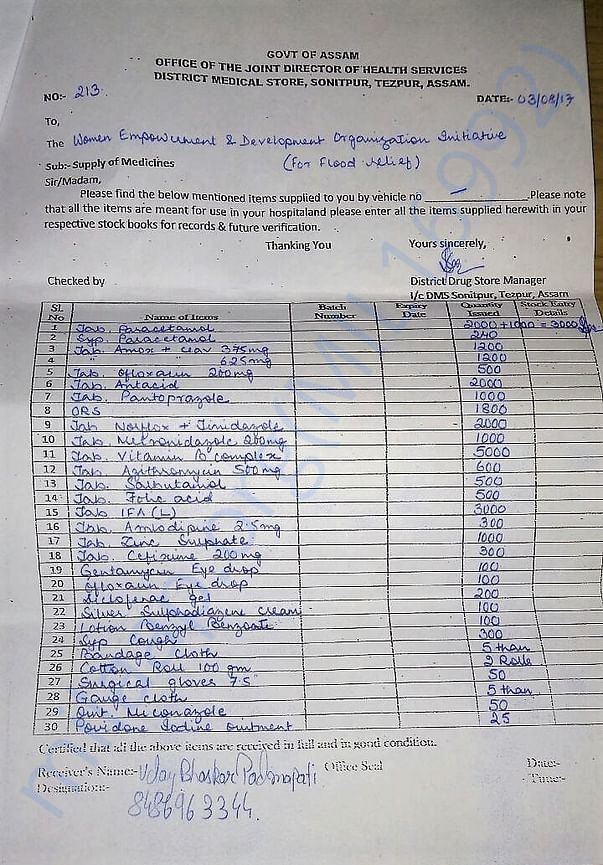 GOVT OF ASSAM
OFFICE OF THE JOINT DIRECTOR OF HEALTH SERVICES
DISTRICT MEDICAL STORE, SONITPUR, TEZPUR, ASSAM.
NO:- 213 DATE:- 03/08/17
To,
The Women Empowerment & Development Organization Initiative
Sub:- Supply of Medicines (For Flood relief)
Sir/Madam,
Please find the below mentioned items supplied to you by vehicle no — Please note
that all the items are meant for use in your hospitaland please enter all the items supplied herewith in your
respective stock books for records & future verification.
Thanking You Yours sincerely,
Checked by District Drug Store Manager
I/c DMS Sonitpur, Tezpur, Assam
Sl. No Name of Items Batch Number Expiry Date Quantity Issued Stock Entry Details
1 Tab. Paracetamol 2000+1000 = 3000
2 Syp. Paracetamol 240
3 Tab. Amox + clav 375mg 1200
4 " 625mg 1200
5 Tab. Ofloxacin 200mg 500
6 Tab. Antacid 2000
7 Tab. Pantoprazole 1000
8 ORS 1800
9 Tab Norflox + Tinidazole 2000
10 Tab. Metronidazole 200mg 1000
11 Tab. Vitamin B complex 5000
12 Tab. Azithromycin 500mg 600
13 Tab. Salbutamol 500
14 Tab. Folic acid 500
15 Tab. IFA (L) 3000
16 Tab. Amlodipine 2.5mg 300
17 Tab. Zinc Sulphate 1000
18 Tab. Cefixime 200mg 300
19 Gentamycin Eye drop 100
20 Ofloxacin Eye drop 100
21 Diclofenac gel 200
22 Silver Sulphadiazene cream 100
23 Lotion Benzyl Benzoate 100
24 Syp Cough 300
25 Bandage cloth 5 than
26 Cotton Roll 100 gm 2 Rolls
27 Surgical gloves 7.5" 50
28 Gauge cloth 5 than
29 Oint. Miconazole 50
30 Povidone Iodine ointment 25
Certified that all the above items are received in full and in good condition.
Receiver's Name:- Uday Bhaskar Padmapati Office Seal Date:-
Designation:- Time:-
8486963344.